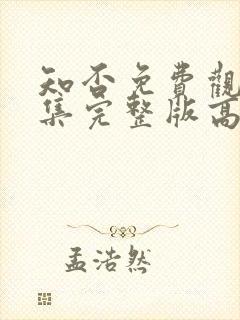 知否免費觀
集完整版高
孟浩然